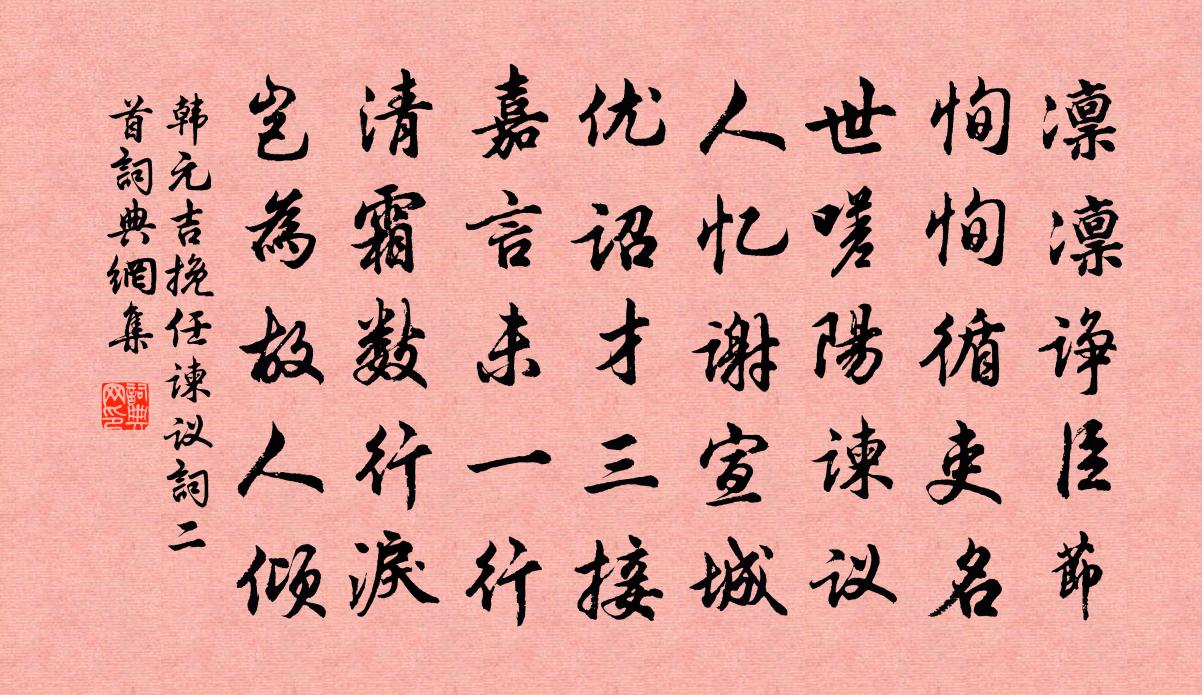 凛凛诤臣節
恂恂循吏名
世嗟陽谏议
人忆谢宣城
优诏才三接
嘉言未一行
清霜数行淚
岂為故人倾
韩元吉挽任谏议詞二
首詞典網集
詞典网印